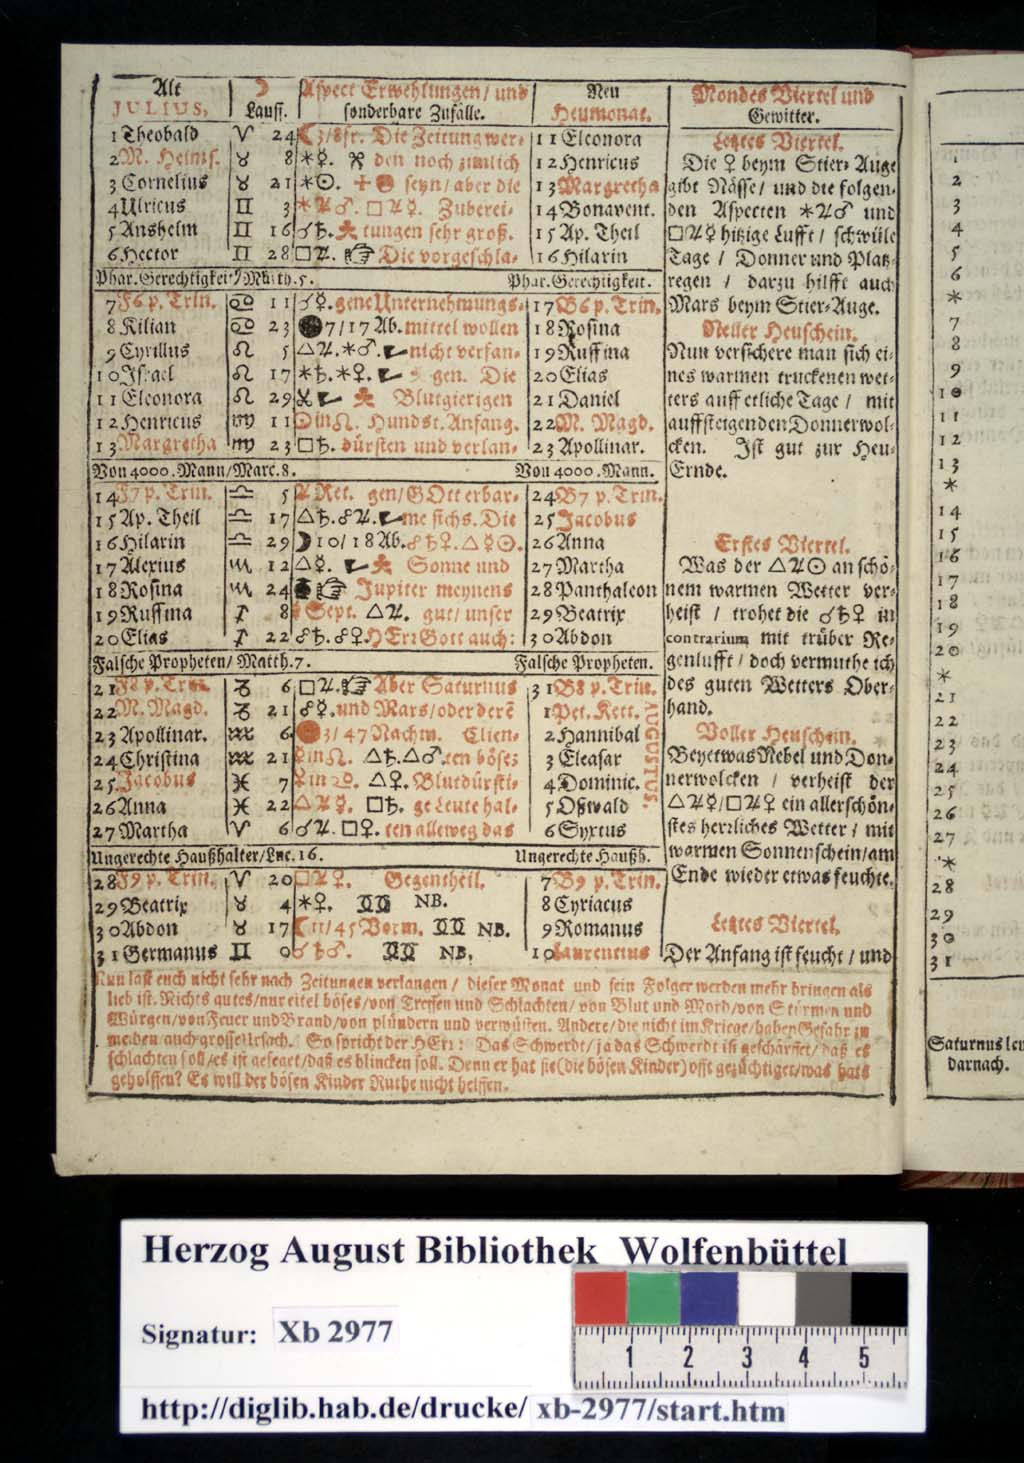 Alt ☽ Aspect Erwehlungen/ und Neu Mondes Viertel und
JULIUS, Lauff. sonderbare Zufälle. Heumonat. Gewitter.
1 Theobald ♈ 24 ☾3/8fr. Die Zeitung wer- 11 Eleonora
2 M. Heims. ♉ 8 ⚹☿. den noch zimlich 12 Henricus
3 Cornelius ♉ 21 ⚹☉. seyn/ aber die 13 Margretha
4 Ulricus ♊ 3 ⚹♃♂. □♃☿. Zuberei- 14 Bonavent.
5 Anshelm ♊ 16 ☌♄. tungen sehr groß. 15 Ap. Theil
6 Hector ♊ 28 □♃. ☞ Die vorgeschla- 16 Hilarin
Phar. Gerechtigkeit/ Matth. 5. Phar. Gerechtigkeit.
7 F6 p. Trin. ♋ 11 ☌☿. gene Unternehmungs- 17 B6 p. Trin.
8 Kilian ♋ 23 7/17 Ab. mittel wollen 18 Rosina
9 Cyrillus ♌ 5 △♃. ⚹♂. nicht verfan- 19 Ruffina
10 Israel ♌ 17 ⚹♄. ⚹♀. gen. Die 20 Elias
11 Eleonora ♌ 29 Blutgierigen 21 Daniel
12 Henricus ♍ 11 ☉ in ♌. Hundst. Anfang. 22 M. Magd.
13 Margretha ♍ 23 □♄. dürsten und verlan- 23 Apollinar.
Von 4000. Mann/ Marc. 8. Von 4000. Mann.
14 F7 p. Trin. ♎ 5 ♃ Ret. gen/ GOtt erbar- 24 B7 p. Trin.
15 Ap. Theil ♎ 17 △♄. ☍♃. me sichs. Die 25 Jacobus
16 Hilarin ♎ 29 ☽10/18 Ab. ☍♄♀. △☿☉. 26 Anna
17 Alexius ♏ 12 △☿. Sonne und 27 Martha
18 Rosina ♏ 24 ☞ Jupiter meynens 28 Panthaleon
19 Ruffina ♐ 8 Sept. △♃. gut/ unser 29 Beatrix
20 Elias ♐ 22 ☍♄. ☍♀. HErr Gott auch: 30 Abdon
Falsche Propheten/ Matth. 7. Falsche Propheten.
21 F8 p. Trin. ♑ 6 □♃. ☞ Aber Saturnus 31 B8 p. Trin.
22 M. Magd. ♑ 21 ☍☿. und Mars/ oder derē 1 Pet. Kett.
23 Apollinar. ♒ 6 3/47 Nachm. Clien- 2 Hannibal
24 Christina ♒ 21 ☿ in ♌. △♄. △♂. ten böses 3 Eleasar
25 Jacobus ♓ 7 ♀ in ♋. △♀. Blutdürsti- 4 Dominic.
26 Anna ♓ 22 △♃☿. □♄. ge Leute hal- 5 Oßwald
27 Martha ♈ 6 ☌♃. □♀. ten alleweg das 6 Syxtus
AUGUSTUS.
Ungerechte Haußhalter/ Luc. 16. Ungerechte Haußh.
28 F9 p. Trin. ♈ 20 □♃♀. Gegentheil. 7 B9 p. Trin.
29 Beatrix ♉ 4 ⚹♀. NB. 8 Cyriacus
30 Abdon ♉ 17 ☾11/45 Vorm. NB. 9 Romanus
31 Germanus ♊ 0 ☌♄♂. NB. 10 Laurentius
Letztes Viertel.
Die ♀ beym Stier-Auge
gibt Nässe/ und die folgen-
den Aspecten ⚹♃♂ und
□♃☿ hitzige Lufft/ schwüle
Tage/ Donner und Platz-
regen/ darzu hilfft auch
Mars beym Stier-Auge.
Neuer Heuschein.
Nun versichere man sich ei-
nes warmen truckenen wet-
ters auff etliche Tage/ mit
auffsteigenden Donnerwol-
cken. Ist gut zur Heu-
Ernde.
Erstes Viertel.
Was der △♃☉ an schö-
nem warmen Wetter ver-
heist/ trohet die ☍♄♀ in
contrarium mit trüber Re-
genlufft/ doch vermuthe ich
des guten Wetters Ober-
hand.
Voller Heuschein.
Bey etwas Nebel und Don-
nerwolcken/ verheist der
△♃☿/ □♃♀ ein allerschön-
stes herzliches Wetter/ mit
warmen Sonnenschein/ am
Ende wieder etwas feuchte.
Letztes Viertel.
Der Anfang ist feucht/ und
Nun last euch nicht sehr nach Zeitungen verlangen/ dieser Monat und sein Folger werden mehr bringen als
lieb ist. Nichts gutes/ nur eitel böses/ von Treffen und Schlachten/ von Blut und Mord/ von Stürmen und
Würgen/ von Feuer und Brand/ von plündern und verwüsten. Andere/ die nicht im Kriege/ haben Gefahr zu
meiden auch grosse Ursach. So spricht der HErr: Das Schwerdt/ ja das Schwerdt ist geschärffet/ daß es
schlachten soll/ es ist gefeget/ daß es blincken soll. Denn er hat sie (die bösen Kinder) offt gezüchtiget/ was hats
geholffen? Es will der bösen Kinder Ruthe nicht helffen.
1
2
3
4
5
6
*
7
8
9
10
11
12
13
*
14
15
16
17
18
19
20
*
21
22
23
24
25
26
27
*
28
29
30
31
Saturnus
darnach.
Herzog August Bibliothek Wolfenbüttel
Signatur: Xb 2977
1 2 3 4 5
http://diglib.hab.de/drucke/ xb-2977/start.htm